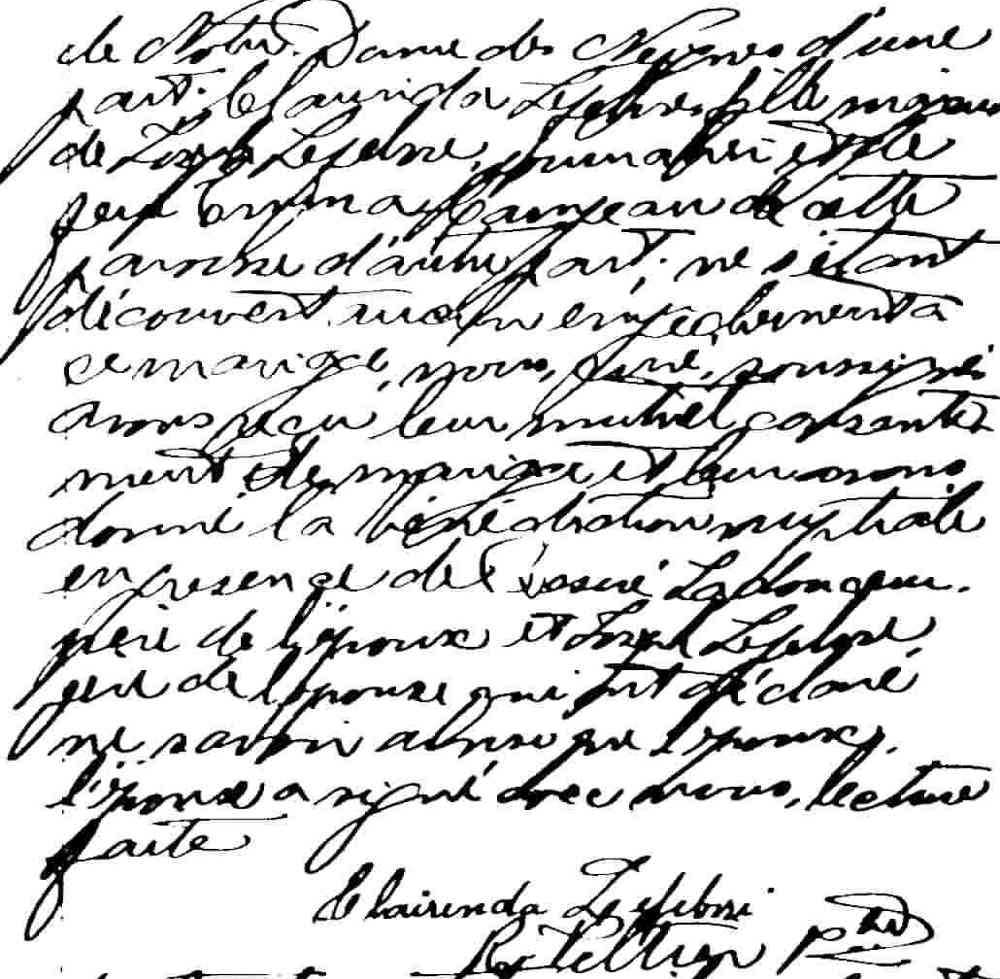 de Notre Dame des Neiges d'une
part; Claurida Lefebvre fille mineure
de Joseph Lefebvre, journalier et de
feue Emma Campeau de cette
paroisse d'autre part; ne s'étant
découvert aucun empêchement à
ce mariage, nous, curé, soussigné
avons reçu leur mutuel consente
ment de mariage et leur avons
donné la bénédiction nuptiale
en présence de Ladouceur
père de l'époux et Joseph Lefebvre
père de l'épouse qui ont déclaré
ne savoir ainsi que l'époux,
l'épouse a signé avec nous, lecture
faite
Clairenda Lefebvre
Pelletier Ptre